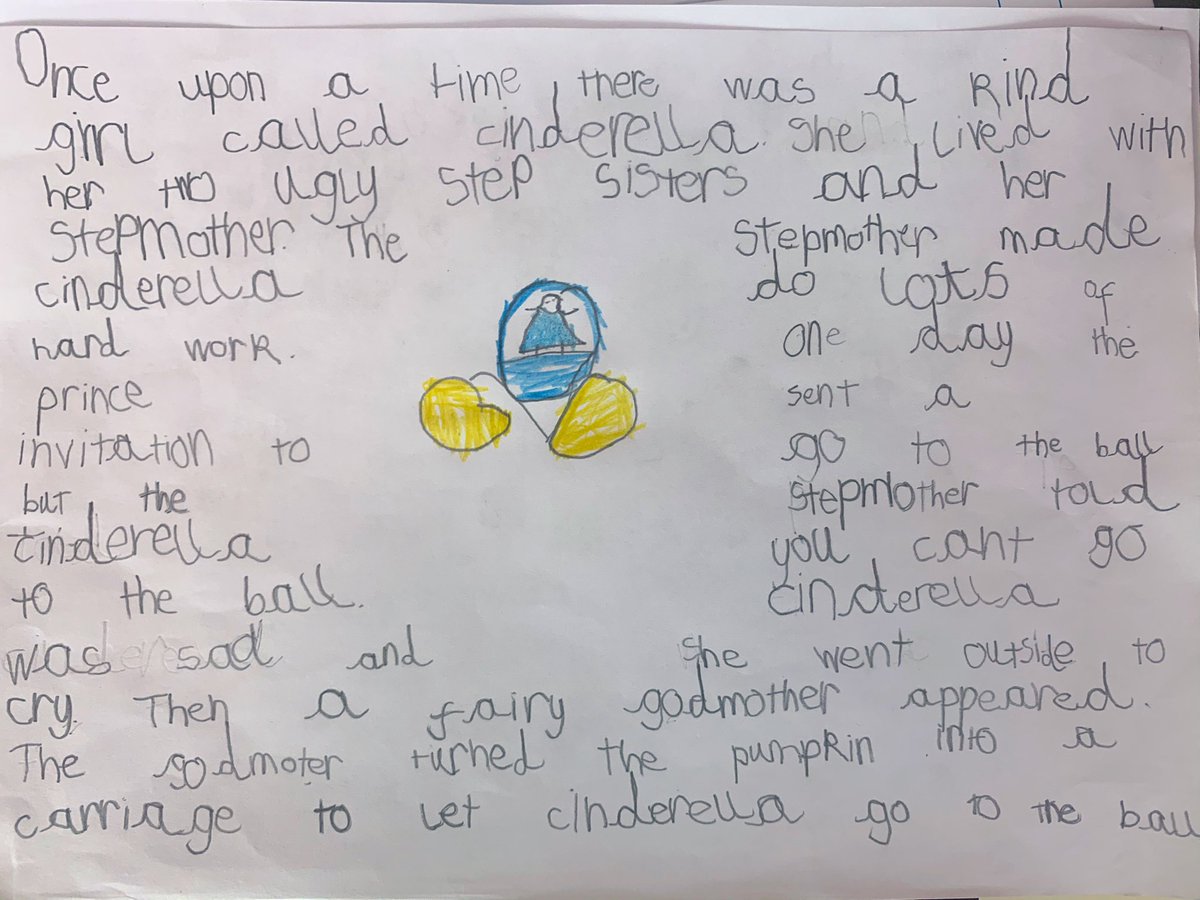 Once upon a time there was a kind
girl called cinderella. She lived with
her two ugly step sisters and her
stepmother. The stepmother made
cinderella do lots of
hard work. one day the
prince sent a
invitation to go to the ball
but the stepmother told
cinderella you cant go
to the ball. cinderella
was sad and She went outside to
cry. Then a fairy godmother appeared.
The godmoter turned the pumpkin into a
carriage to let cinderella go to the ball